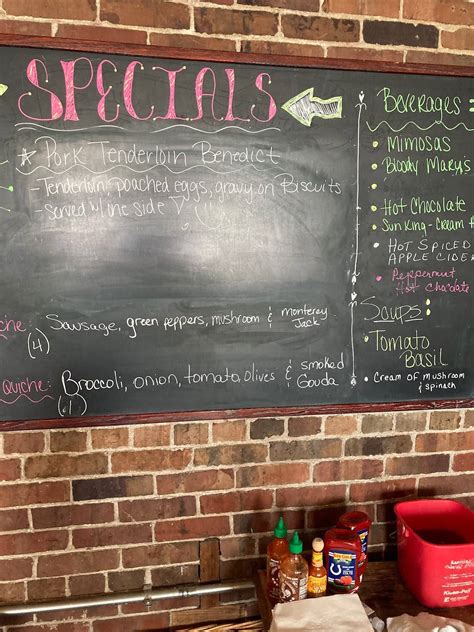 SPECIALS
Pork Tenderloin Benedict
- Tenderloin, poached eggs, gravy on Biscuits
- Served w/ one side
che: Sausage, green peppers, mushroom & monterey Jack
(4)
Quiche: Broccoli, onion, tomato, olives & smoked Gouda
Beverages
Mimosas
Bloody Mary's
Hot Chocolate
Sun King - Cream
HOT SPICED
APPLE CIDER
Peppermint
Hot Chocolate
Soups:
Tomato
Basil
Cream of mushroom
& spinach